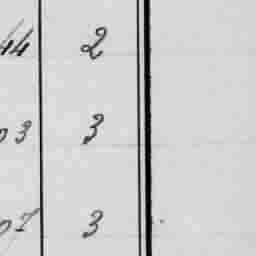 44 2
03 3
07 3